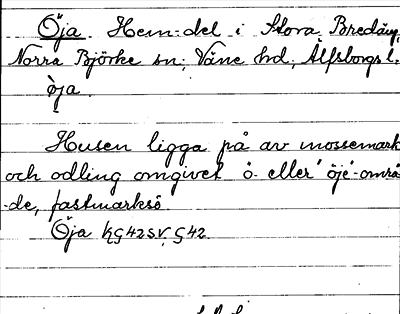 Öja. Hem:del i Stora Bredäng,
Norra Björke sn; Väne hd, Älfsborgs l.
öja.
Husen ligga på av mossemark
och odling omgivet ö- eller öje-områ
-de, fastmarksö.
Öja